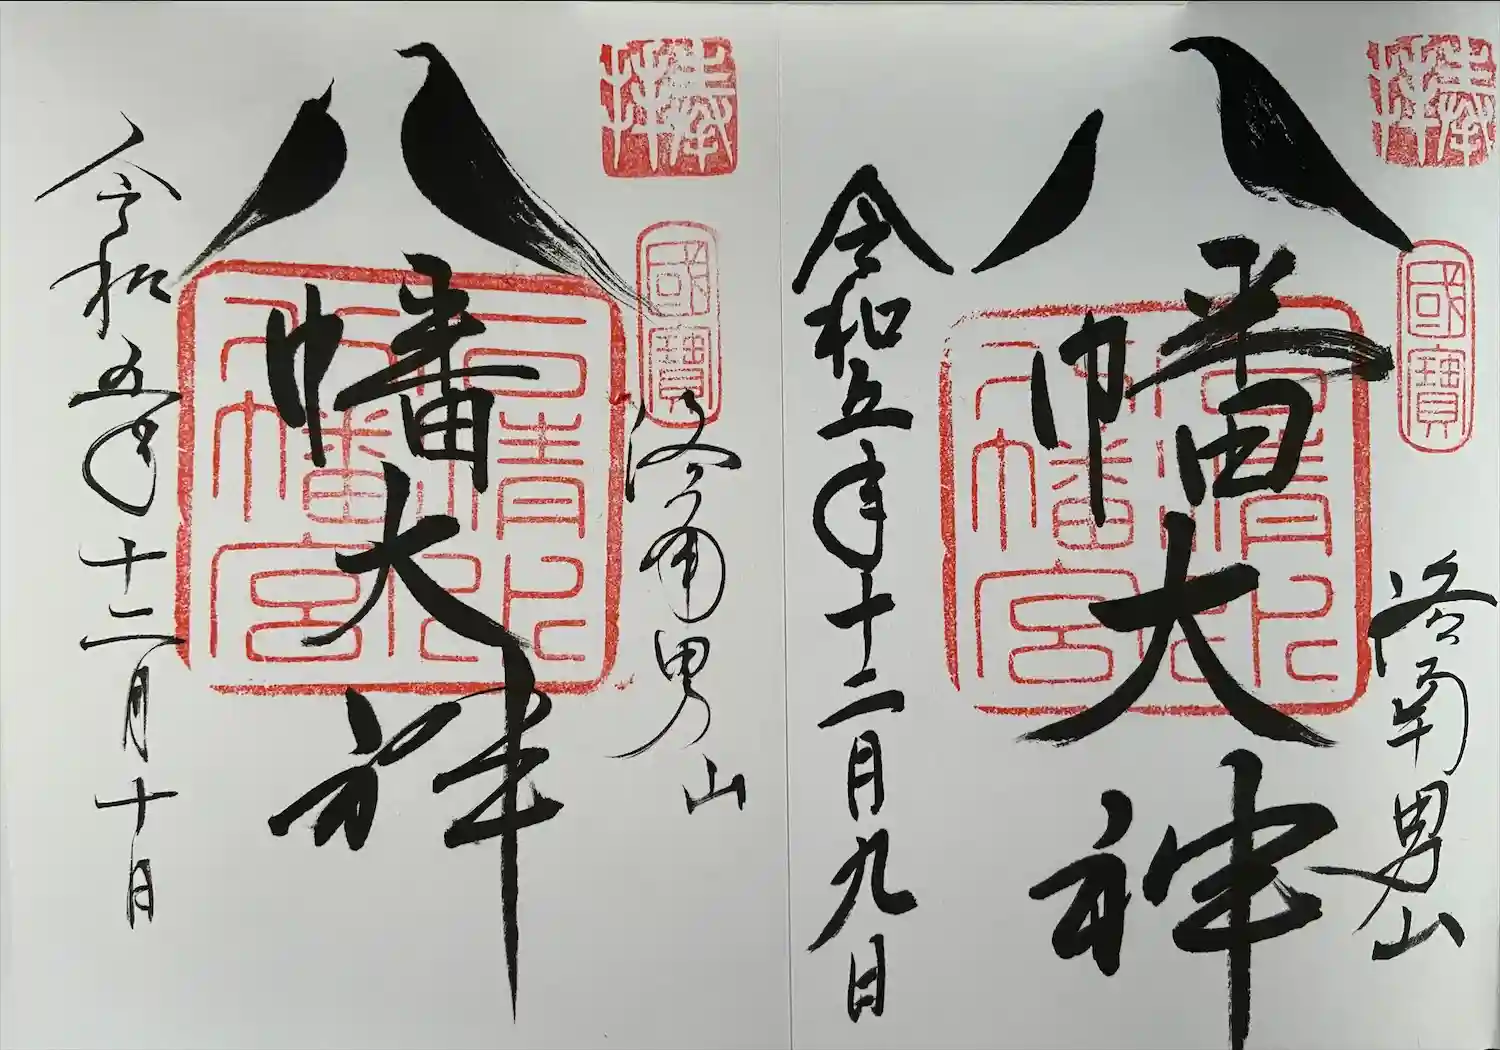 奉拝
國寶
洛南男山
八幡大神
石清水八幡宮印
令和五年十二月九日
奉拝
國寶
洛南男山
八幡大神
石清水八幡宮印
令和五年十二月十日